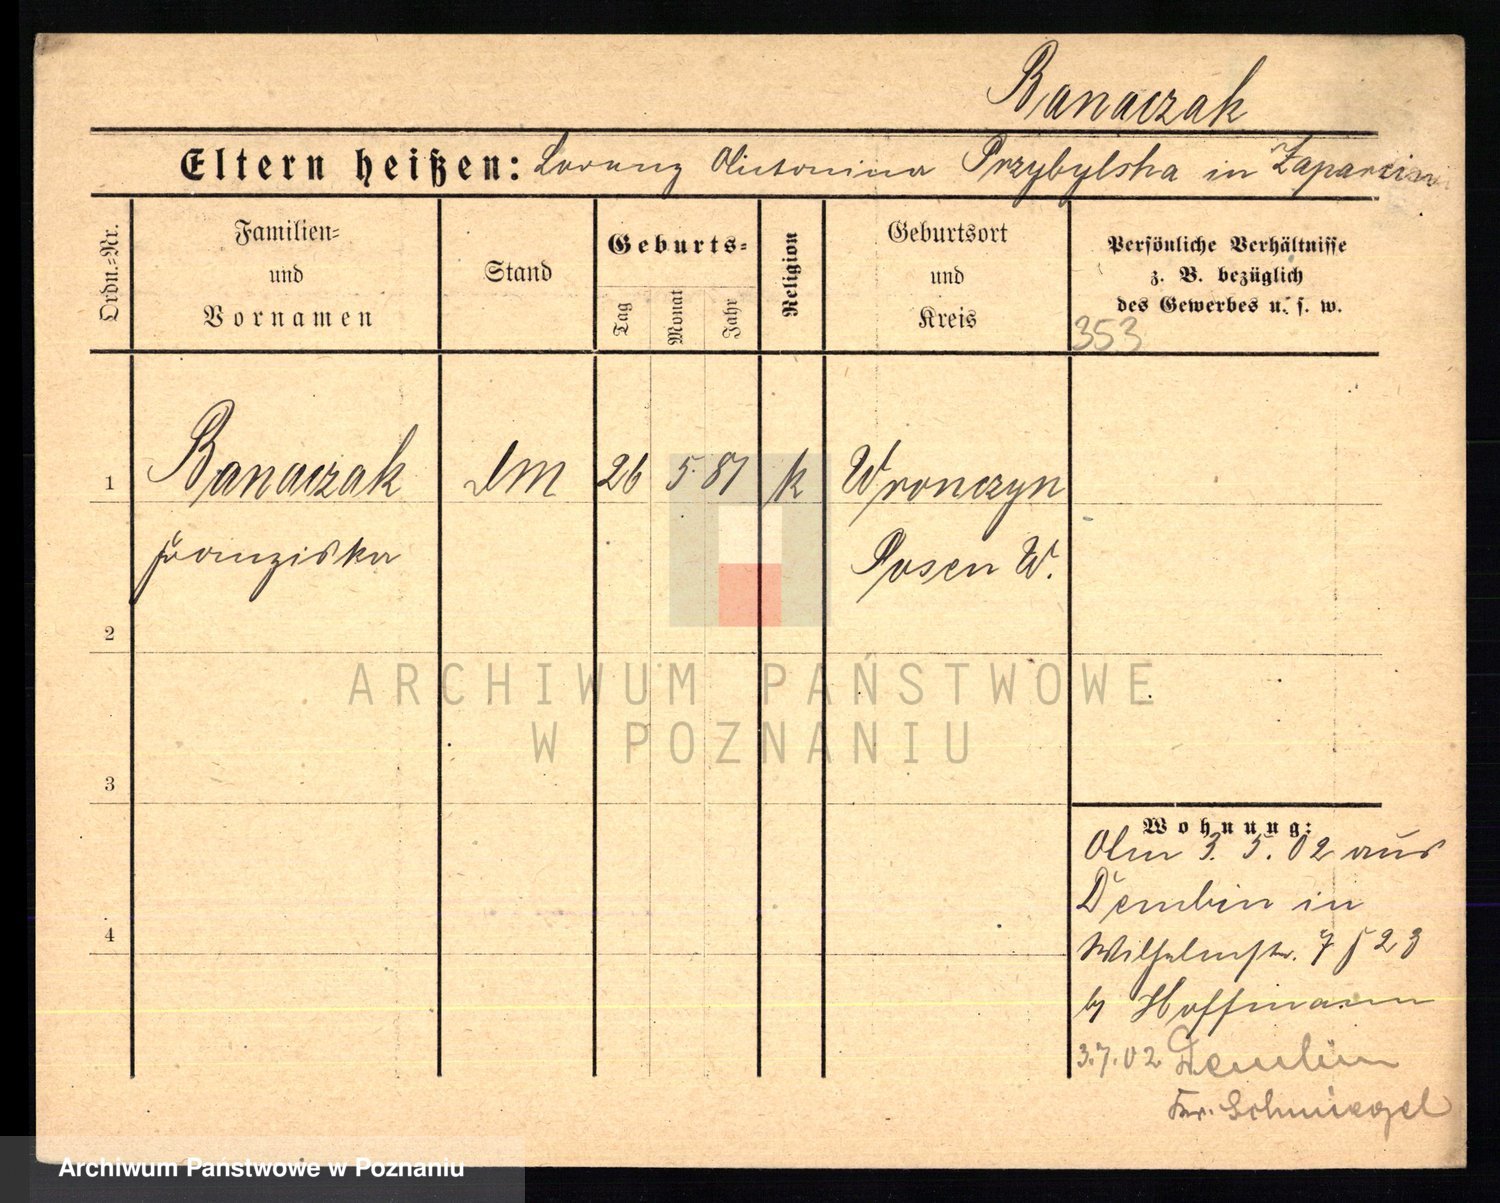 Banaczak
Eltern heißen: Lorenz Antonina Przybylska in
Ordn.-Nr.
Familien-
und
Vornamen
Stand
Geburts-
Tag
Monat
Jahr
Religion
Geburtsort
und
Kreis
Persönliche Verhältnisse
z. B. bezüglich
des Gewerbes u. s. w.
353
1
Banaczak
26 5. 81
k
Wronczyn
Franziska
Posen W.
2
ARCHIWUM PAŃSTWOWE
W POZNANIU
3
Wohnung:
3. 5. 02 aus
Dembin in
4
Wilhelmstr. 7 23
Hoffmann
3.7.02 Dembin
Kr. Schmiegel
Archiwum Państwowe w Poznaniu